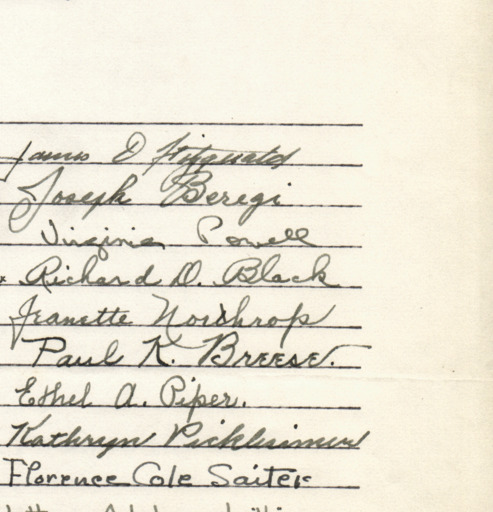 James D Fitzgerald
Joseph Beregi
Virginia Powell
Richard D. Black
Jeanette Northrop
Paul K. Breese.
Ethel A. Piper.
Kathryn Pickleimer
Florence Cole Saiter